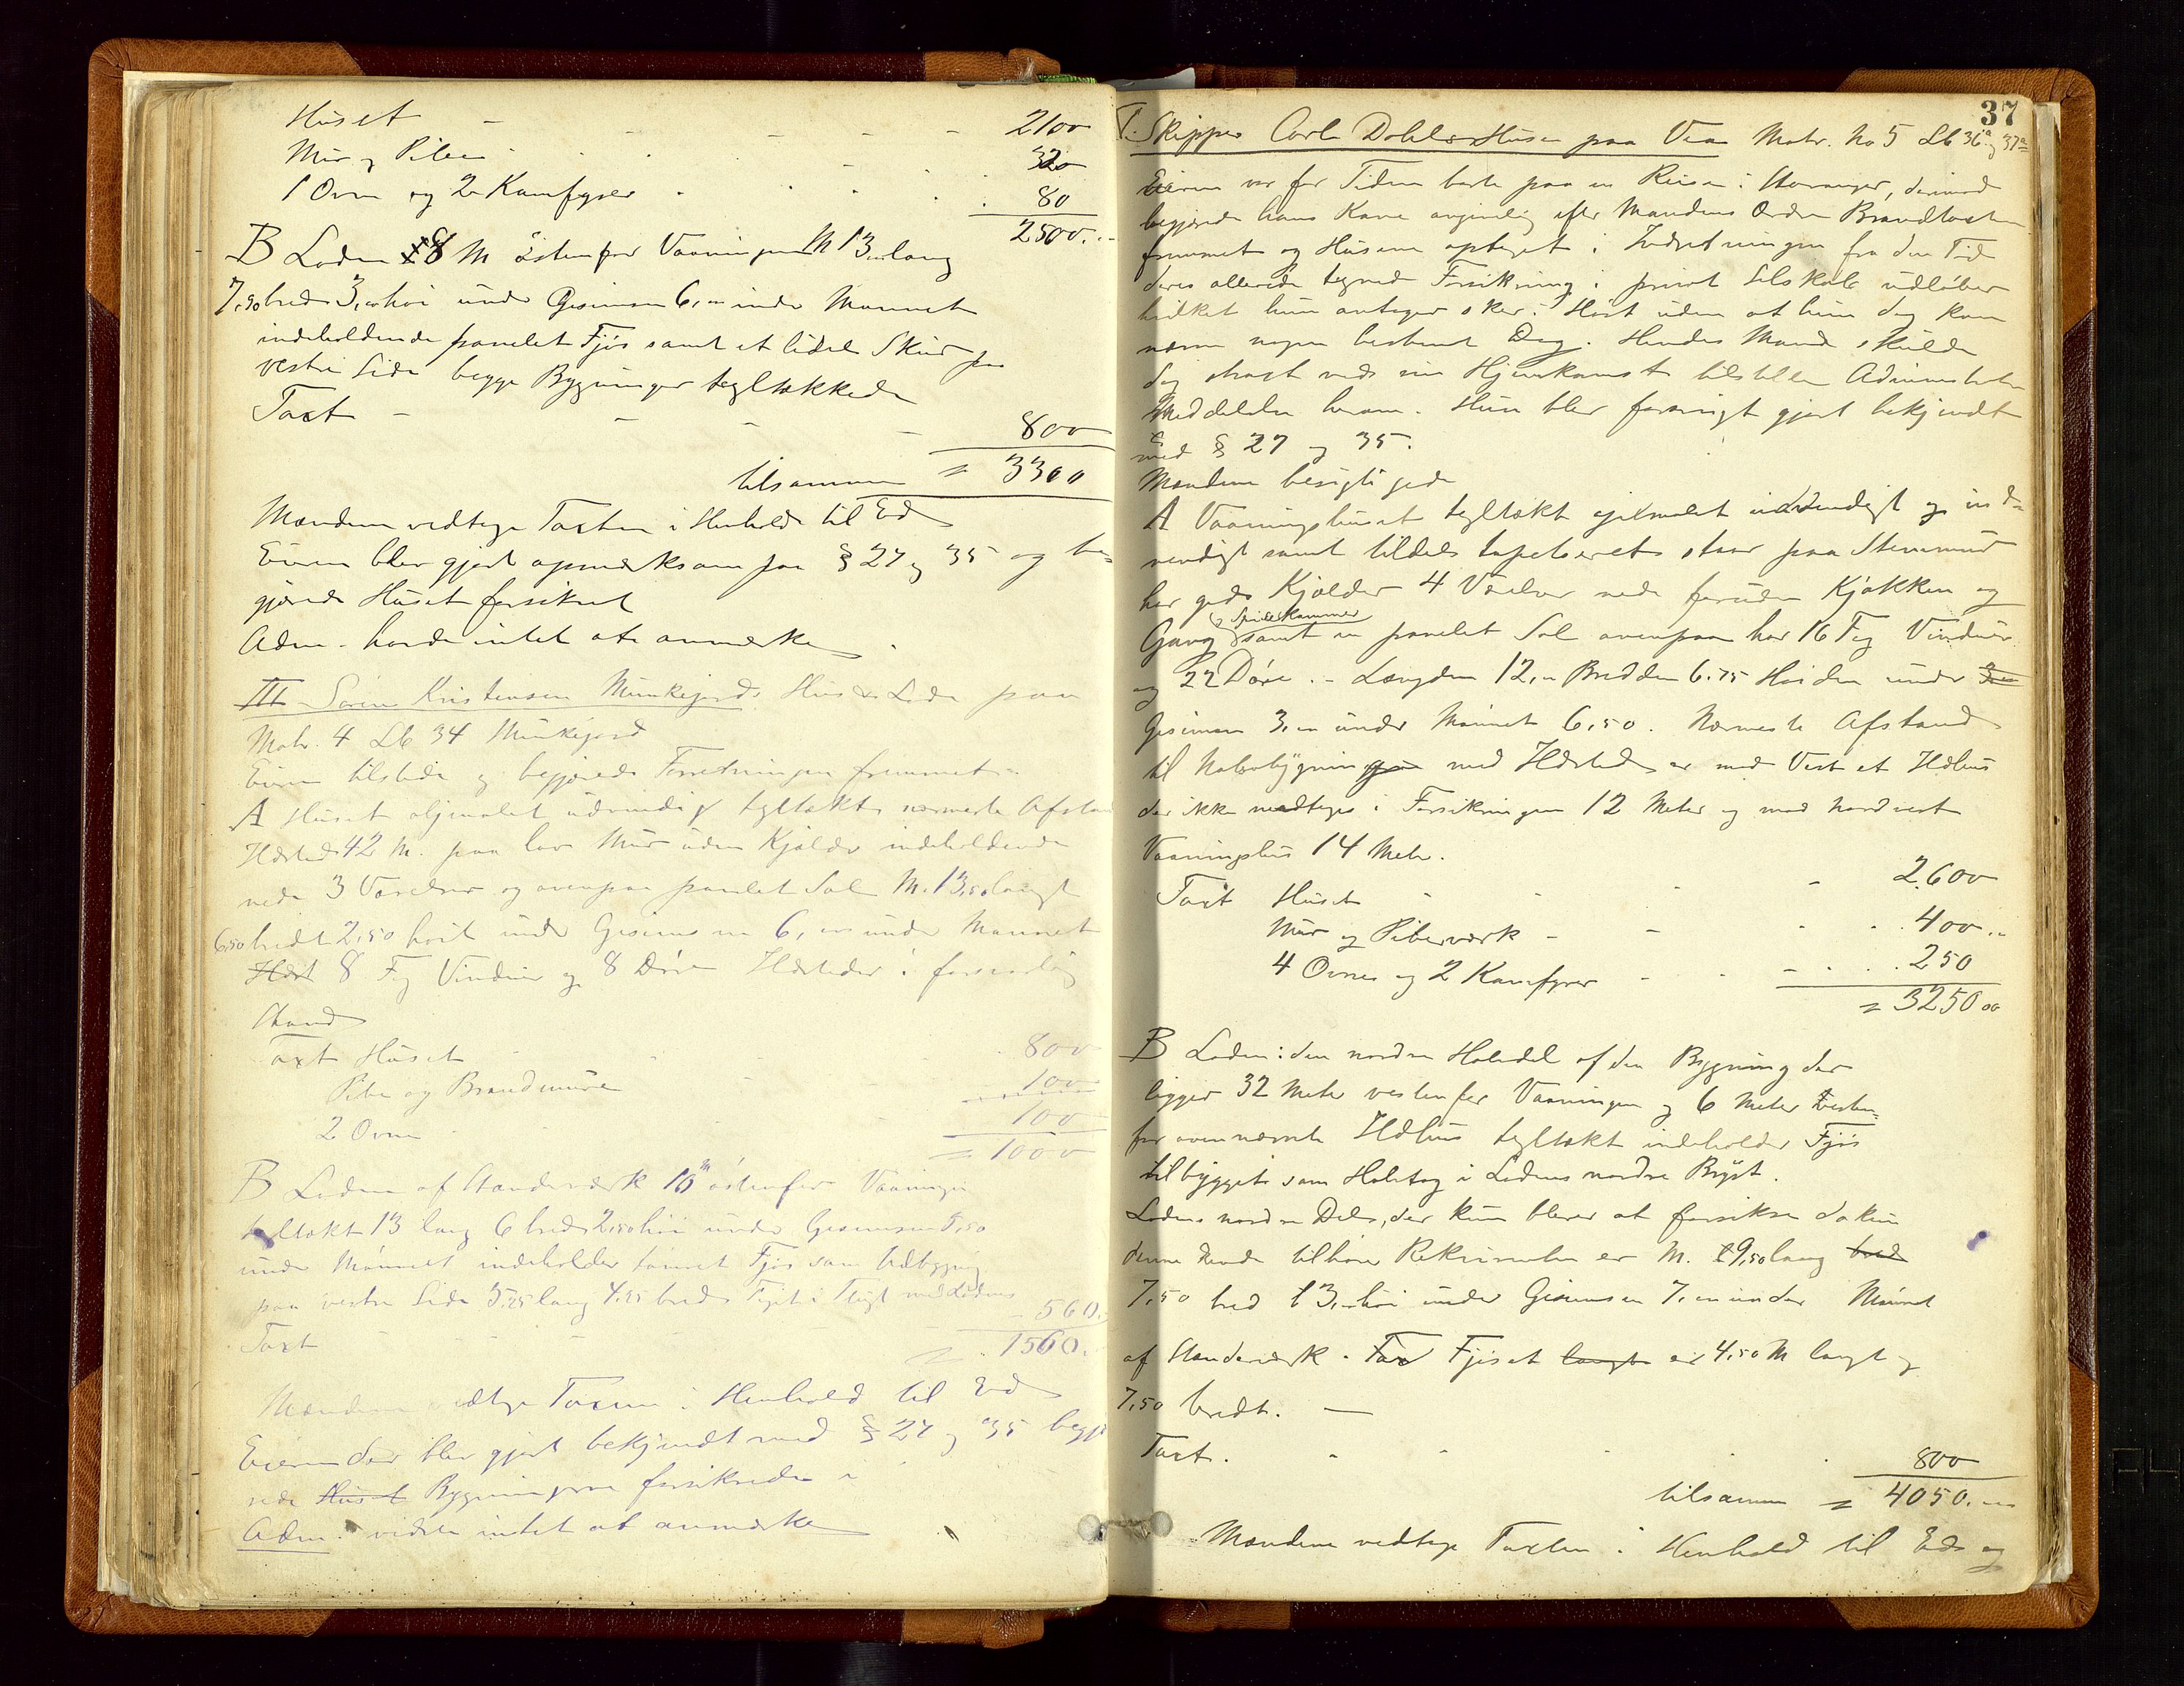 Huset - - - - 2100
Mur og Piber - - - 320
1 Ovn og 2 Kamfyrer - - 80
2500..
B Loden 8 M østenfor Vaaningen M 13,00 lang
7,50 bred 3,00 høi under Gesimsen 6,00 under Mønnet
indeholdende panelet Fjøs samt et lidet Skur paa
vestre Side begge Bygninger tegltækkede
Taxt - - - - 800
tilsammen = 3300
Mændene vedtoge Taxten i Henhold til Ed
Eieren blev gjort opmærksom paa § 27 og 35 og be=
gjærede Huset forsikret
Adm. havde intet at anmærke.
III Søren Kristensen Munkejords Hus & Lode paa
Matr. 4 Lb 34 Munkejord
Eieren tilstede og begjærede Forretningen fremmet.
A Huset oljemalet udvendig tegltækt nærmeste Afstand
Ildsted 42 M. paa lav Mur uden Kjælder indeholdende
nede 3 Værelser og ovenpaa panelet Sal M. 13,50 langt
6,50 bredt 2,50 høit under Gesimsen 6,00 under Mønnet
8 Fag Vinduer og 8 Døre Ildsteder i forsvarlig
Stand
Taxt Huset - - 800
Pibe og Brandmure - - 100
2 Ovne - - 100
= 1000
B Loden af Standerværk 16 m østenfor Vaaningen
tegltækt 13 lang 6 bred 2,50 høi under Gesimsen 5,50
under Mønnet indeholder tømret Fjøs som Udbygning
paa vestre Side 5,25 lang 4,25 bred Fløit i Flugt med Lodens
- 560.
Taxt - - - 1560.
Mændene vedtoge Taxten i Henhold til Ed
Eieren der blev gjort bekjendt med § 27 og 35 begjæ
rede Huset Bygningerne forsikrede
Adm. vidste intet at anmærke
37
T. Skipper Carl Dahls Huse paa Vea Matr. No 5 Lb 36a og 37a
Eieren var for Tiden borte paa en Reise i Stavanger, derimod
begjærede hans Kone angivelig efter Mandens Ordre Brandtaxten
fremmet og Husene optaget i Indretningen fra den Tid
deres allerede tegnede Forsikring i privat Selskab udløber
hvilket hun antager sker i Høst uden at hun dog kan
nævne nogen bestemt Dag. Hendes Mand skulde
dog strax ved sin Hjemkomst tilstille Administrationen
Meddelelse herom. Hun blev forøvrigt gjort bekjendt
med § 27 og 35.
Mændene besigtigede
A Vaaningshuset tegltækt oljemalet udvendigt og ind=
vendigt samt tildels tapetseret staar paa Stenmur
har gode Kjælder 4 Værelser nede foruden Kjøkken og
Gang og Spisekammer samt en panelet Sal ovenpaa har 16 Fag Vinduer
og 22 Døre. - Længden 12,00 Bredden 6.75 Høiden under
Gesimsen 3,00 under Mønnet 6,50. Nærmeste Afstand
til Nabobygning med Ildsted er mod Vest et Ildhus
der ikke medtages i Forsikringen 12 Meter og mod Nordvest
Vaaningshus 14 Meter.
Taxt Huset - - - 2.600
Mur og Piberværk - - - 400..
4 Ovne og 2 Kamfyrer - - - 250
= 3250 00
B Loden: den nordre Halvdel af den Bygning der
ligger 32 Meter vestenfor Vaaningen og 6 Meter vesten=
for ovennævnte Ildhus tegltækt indeholder Fjøs
tilbygget som Halvtag i Lodens nordre Bryst.
Lodens nordre Del, der kun bliver at forsikre da kun
denne Ende tilhører Rekvirenten er M. 19,50 lang bred
7,50 bred 3,00 høi under Gesimsen 7,00 under Mønnet
af Standerværk. Tax Fjøset langt er 4,50 M langt og
7,50 bredt. -
Taxt. - - - 800
tilsammen = 4050.00
Mændene vedtoge Taxten i Henhold til Ed og